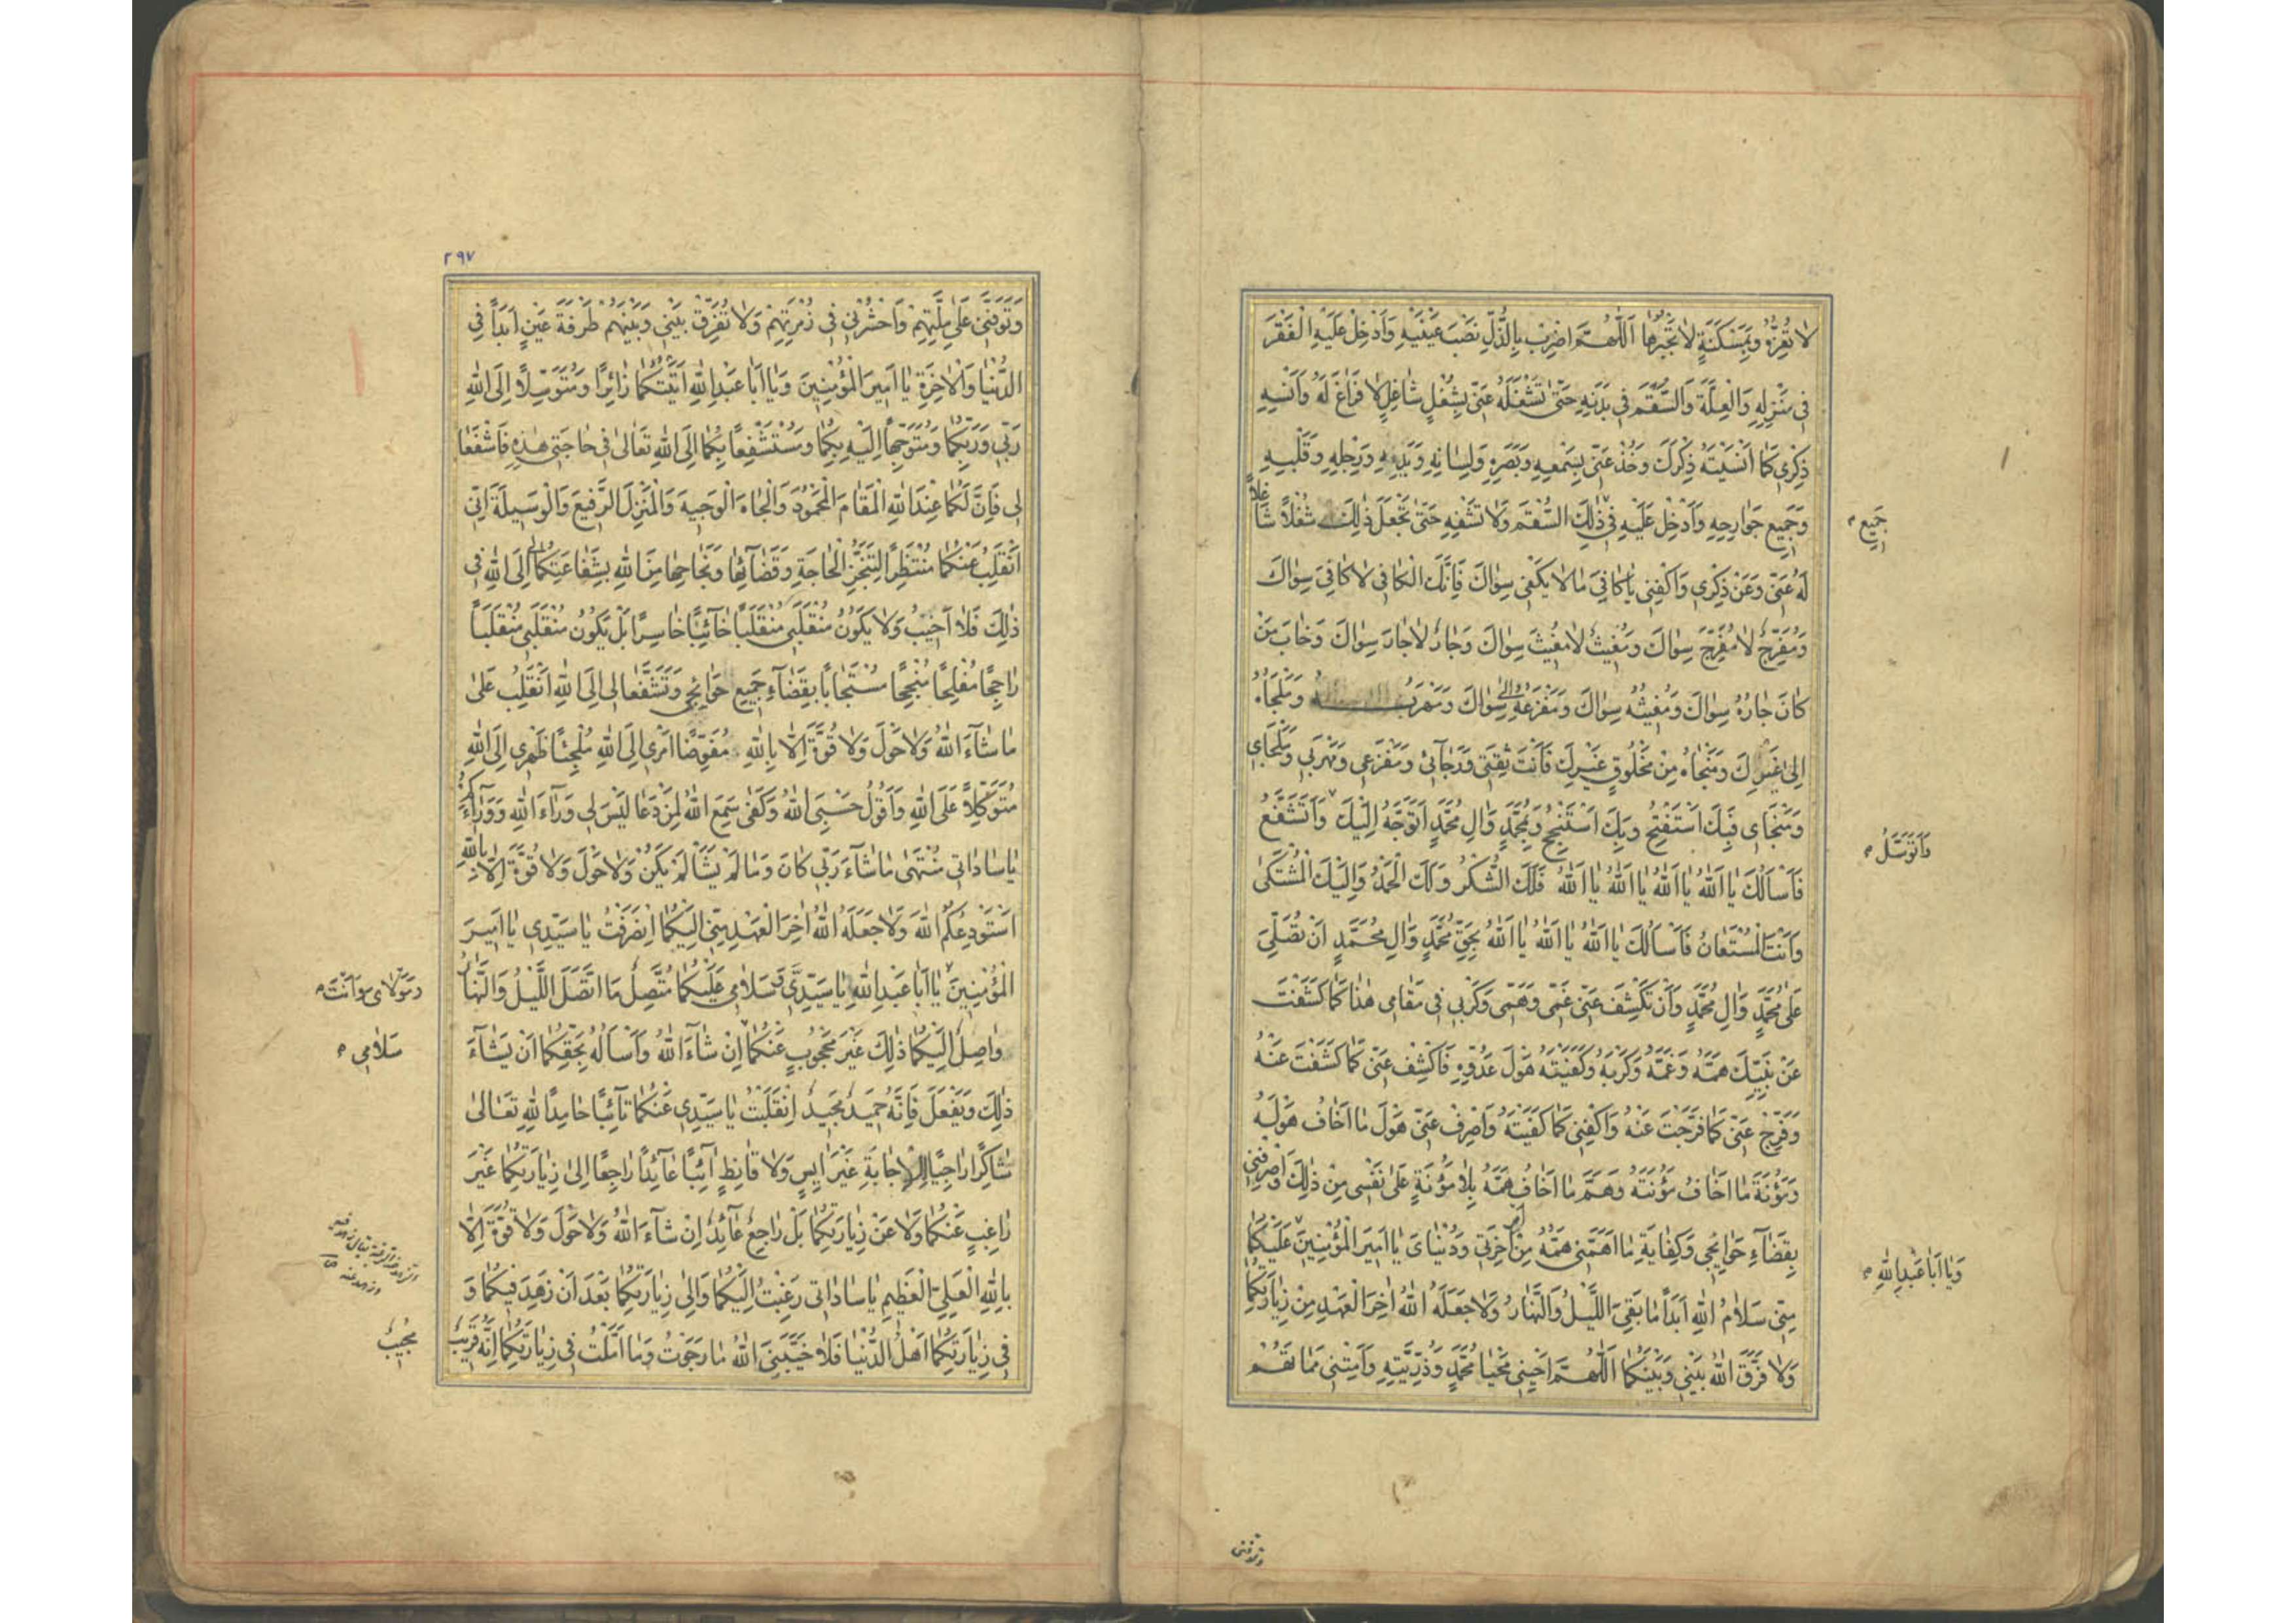 لا تُعِزُّهُ وَبِمَسْكَنَةٍ لا تَجْبُرُها اَللّٰهُمَّ اضْرِبْ بِالذُّلِّ نَصْبَ عَيْنَيْهِ وَاَدْخِلْ عَلَيْهِ الْفَقْرَ
في مَنْزِلِهِ وَالْعِلَّةَ وَالسُّقْمَ في بَدَنِهِ حَتّىٰ تَشْغَلَهُ عَنّي بِشُغْلٍ شاغِلٍ لا فَراغَ لَهُ وَاَنْسِهِ
ذِكْري كَما اَنْسَيْتَهُ ذِكْرَكَ وَخُذْ عَنّي بِسَمْعِهِ وَبَصَرِهِ وَلِسانِهِ وَيَدِهِ وَرِجْلِهِ وَقَلْبِهِ
وَجَميعِ جَوارِحِهِ وَاَدْخِلْ عَلَيْهِ في ذٰلِكَ السُّقْمَ وَلا تَشْفِهِ حَتّىٰ تَجْعَلَ ذٰلِكَ شُغْلاً شاغِلاً
جَميعِ
لَهُ عَنّي وَعَنْ ذِكْري وَاكْفِني يا كافِيَ ما لا يَكْفي سِواكَ فَاِنَّكَ الْكافي لا كافِيَ سِواكَ
وَمُفَرِّجٌ لا مُفَرِّجَ سِواكَ وَمُغيثٌ لا مُغيثَ سِواكَ وَجارٌ لا جارَ سِواكَ وَخابَ مَنْ
كانَ جارُهُ سِواكَ وَمُغيثُهُ سِواكَ وَمَفْزَعُهُ اِلىٰ سِواكَ وَمَهْرَبُهُ وَمَلْجَاُهُ
اِلىٰ غَيْرِكَ وَمَنْجاهُ مِنْ مَخْلُوقٍ غَيْرِكَ فَاَنْتَ ثِقَتي وَرَجائي وَمَفْزَعي وَمَهْرَبي وَمَلْجَاي
وَمَنْجايَ فَبِكَ اَسْتَفْتِحُ وَبِكَ اَسْتَنْجِحُ وَبِمُحَمَّدٍ وَالِ مُحَمَّدٍ اَتَوَجَّهُ اِلَيْكَ وَاَتَشَفَّعُ
وَاَتَوَسَّلُ
فَاَسْاَلُكَ يا اَللّٰهُ يا اَللّٰهُ يا اَللّٰهُ يا اَللّٰهُ فَلَكَ الشُّكْرُ وَلَكَ الْحَمْدُ وَاِلَيْكَ الْمُشْتَكىٰ
وَاَنْتَ الْمُسْتَعانُ فَاَسْاَلُكَ يا اَللّٰهُ يا اَللّٰهُ يا اَللّٰهُ بِحَقِّ مُحَمَّدٍ وَالِ مُحَمَّدٍ اَنْ تُصَلِّيَ
عَلىٰ مُحَمَّدٍ وَالِ مُحَمَّدٍ وَاَنْ تَكْشِفَ عَنّي غَمّي وَهَمّي وَكَرْبي في مَقامي هٰذا كَما كَشَفْتَ
عَنْ نَبِيِّكَ هَمَّهُ وَغَمَّهُ وَكَرْبَهُ وَكَفَيْتَهُ هَوْلَ عَدُوِّهِ فَاكْشِفْ عَنّي كَما كَشَفْتَ عَنْهُ
وَفَرِّجْ عَنّي كَما فَرَّجْتَ عَنْهُ وَاكْفِني كَما كَفَيْتَهُ وَاصْرِفْ عَنّي هَوْلَ ما اَخافُ هَوْلَهُ
وَمَؤُنَةَ ما اَخافُ مَؤُنَتَهُ وَهَمَّ ما اَخافُ هَمَّهُ بِلا مَؤُنَةٍ عَلىٰ نَفْسي مِنْ ذٰلِكَ وَاصْرِفْني
بِقَضاءِ حَوائِجي وَكِفايَةِ ما اَهَمَّني هَمُّهُ مِنْ اَمْرِ اخِرَتي وَدُنْيايَ يا اَميرَ الْمُؤْمِنينَ عَلَيْكُما
وَيا اَبا عَبْدِ اللّٰهِ
مِنّي سَلامُ اللّٰهِ اَبَداً ما بَقِيَ اللَّيْلُ وَالنَّهارُ وَلا جَعَلَهُ اللّٰهُ اخِرَ الْعَهْدِ مِنْ زِيارَتِكُما
وَلا فَرَّقَ اللّٰهُ بَيْني وَبَيْنَكُما اَللّٰهُمَّ اَحْيِني مَحْيا مُحَمَّدٍ وَذُرِّيَّتِهِ وَاَمِتْني مَماتَهُمْ
وتوفني
۲۹۷
وَتَوَفَّني عَلىٰ مِلَّتِهِمْ وَاحْشُرْني في زُمْرَتِهِمْ وَلا تُفَرِّقْ بَيْني وَبَيْنَهُمْ طَرْفَةَ عَيْنٍ اَبَداً في
الدُّنْيا وَالْاخِرَةِ يا اَميرَ الْمُؤْمِنينَ وَيا اَبا عَبْدِ اللّٰهِ اَتَيْتُكُما زائِراً وَمُتَوَسِّلاً اِلَى اللّٰهِ
رَبّي وَرَبِّكُما وَمُتَوَجِّهاً اِلَيْهِ بِكُما وَمُسْتَشْفِعاً بِكُما اِلَى اللّٰهِ تَعالىٰ في حاجَتي هٰذِهِ فَاشْفَعا
لي فَاِنَّ لَكُما عِنْدَ اللّٰهِ الْمَقامَ الْمَحْمُودَ وَالْجاهَ الْوَجيهَ وَالْمَنْزِلَ الرَّفيعَ وَالْوَسيلَةَ اِنّي
اَنْقَلِبُ عَنْكُما مُنْتَظِراً لِتَنَجُّزِ الْحاجَةِ وَقَضائِها وَنَجاحِها مِنَ اللّٰهِ بِشَفاعَتِكُما لي اِلَى اللّٰهِ في
ذٰلِكَ فَلا اَخيبُ وَلا يَكُونُ مُنْقَلَبي مُنْقَلَباً خائِباً خاسِراً بَلْ يَكُونُ مُنْقَلَبي مُنْقَلَباً
راجِحاً مُفْلِحاً مُنْجِحاً مُسْتَجاباً بِقَضاءِ جَميعِ حَوائِجي وَتَشَفَّعا لي اِلَى اللّٰهِ اَنْقَلِبُ عَلىٰ
ما شاءَ اللّٰهُ وَلا حَوْلَ وَلا قُوَّةَ اِلّا بِاللّٰهِ مُفَوِّضاً اَمْري اِلَى اللّٰهِ مُلْجِئاً ظَهْري اِلَى اللّٰهِ
مُتَوَكِّلاً عَلَى اللّٰهِ وَاَقُولُ حَسْبِيَ اللّٰهُ وَكَفىٰ سَمِعَ اللّٰهُ لِمَنْ دَعا لَيْسَ لي وَراءَ اللّٰهِ وَوَراءَكُمْ
يا ساداتي مُنْتَهىٰ ما شاءَ رَبّي كانَ وَما لَمْ يَشَأْ لَمْ يَكُنْ وَلا حَوْلَ وَلا قُوَّةَ اِلّا بِاللّٰهِ
اَسْتَوْدِعُكُمُ اللّٰهَ وَلا جَعَلَهُ اللّٰهُ اخِرَ الْعَهْدِ مِنّي اِلَيْكُما اِنْصَرَفْتُ يا سَيِّدي يا اَميرَ
الْمُؤْمِنينَ يا اَبا عَبْدِ اللّٰهِ يا سَيِّدي وَسَلامي عَلَيْكُما مُتَّصِلٌ مَا اتَّصَلَ اللَّيْلُ وَالنَّهارُ
وَمَوْلايَ وَاَنْتَ
واصِلٌ اِلَيْكُما ذٰلِكَ غَيْرَ مَحْجُوبٍ عَنْكُما اِنْ شاءَ اللّٰهُ وَاَسْاَلُهُ بِحَقِّكُما اَنْ يَشاءَ
سَلامي
ذٰلِكَ وَيَفْعَلَ فَاِنَّهُ حَميدٌ مَجيدٌ اِنْقَلَبْتُ يا سَيِّدي عَنْكُما تائِباً حامِداً لِلّٰهِ تَعالىٰ
شاكِراً راجِياً لِلْاِجابَةِ غَيْرَ ايِسٍ وَلا قانِطٍ ائِباً عائِداً راجِعاً اِلىٰ زِيارَتِكُما غَيْرَ
راغِبٍ عَنْكُما وَلا عَنْ زِيارَتِكُما بَلْ راجِعٌ عائِدٌ اِنْ شاءَ اللّٰهُ وَلا حَوْلَ وَلا قُوَّةَ اِلّا
بِاللّٰهِ الْعَلِيِّ الْعَظيمِ يا ساداتي رَغِبْتُ اِلَيْكُما وَاِلىٰ زِيارَتِكُما بَعْدَ اَنْ زَهِدَ فيكُما وَ
في زِيارَتِكُما اَهْلُ الدُّنْيا فَلا خَيَّبَنِيَ اللّٰهُ ما رَجَوْتُ وَما اَمَّلْتُ في زِيارَتِكُما اِنَّهُ قَريبٌ
مُجيبٌ